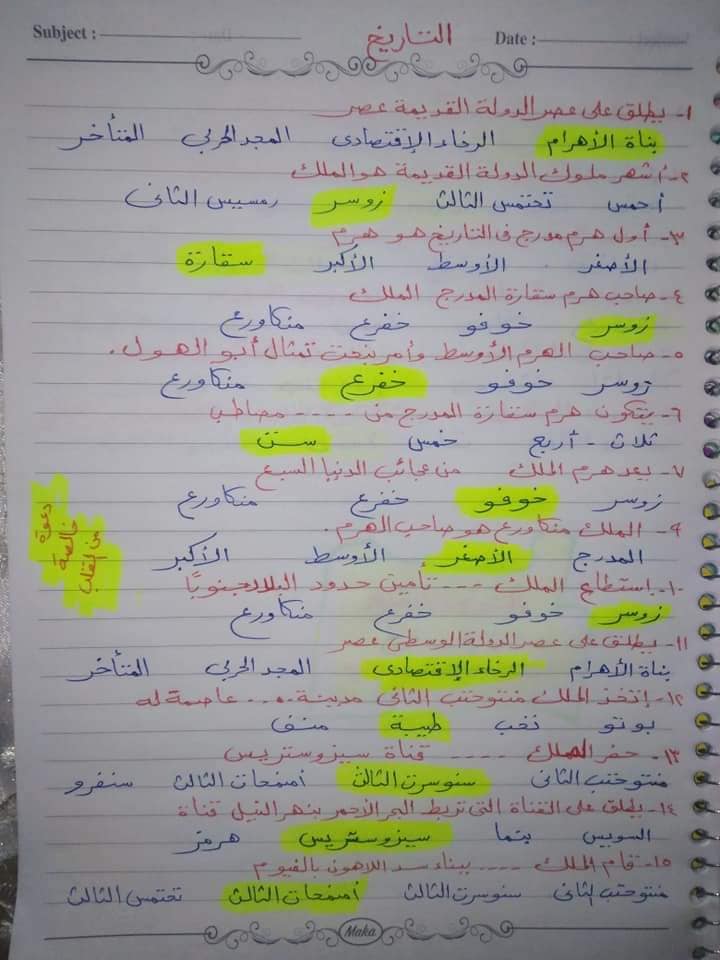 Subject :
التاريخ
Date :
١- يطلق على عصر الدولة القديمة عصر
بناة الأهرام    الرخاء الإقتصادى    المجد الحربى    المتأخر
٢- أشهر ملوك الدولة القديمة هو الملك
أحمس    تحتمس الثالث    زوسر    رمسيس الثانى
٣- أول هرم مدرج فى التاريخ هو هرم
الأصغر    الأوسط    الأكبر    سقارة
٤- صاحب هرم سقارة المدرج الملك
زوسر    خوفو    خفرع    منكاورع
٥- صاحب الهرم الأوسط وأمر بنحت تمثال أبو الهول .
زوسر    خوفو    خفرع    منكاورع
٦- يتكون هرم سقارة المدرج من ---- مصاطب
ثلاث - أربع    خمس    ست
٧- يعد هرم الملك    من عجائب الدنيا السبع
زوسر    خوفو    خفرع    منكاورع
٩- الملك منكاورع هو صاحب الهرم .
المدرج    الأصغر    الأوسط    الأكبر
١٠- إستطاع الملك --- تأمين حدود البلاد جنوبًا
زوسر    خوفو    خفرع    منكاورع
١١- يطلق على عصر الدولة الوسطى عصر
بناة الأهرام    الرخاء الإقتصادى    المجد الحربى    المتأخر
١٢- إتخذ الملك منتوحتب الثانى مدينة .... عاصمة له
بوتو    نخب    طيبة    منف
١٣- حفر الملك ---- قناة سيزوستريس
منتوحتب الثانى    سنوسرت الثالث    أمنمحات الثالث    سنفرو
١٤- يطلق على القناة التى تربط البحر الأحمر بنهر النيل قناة
السويس    بنما    سيزوستريس    هرمز
١٥- قام الملك .... ببناء سد اللاهون بالفيوم
منتوحتب الثانى    سنوسرت الثالث    أمنمحات الثالث    تحتمس الثالث
دعوة
خالصة
من القلب
Maka